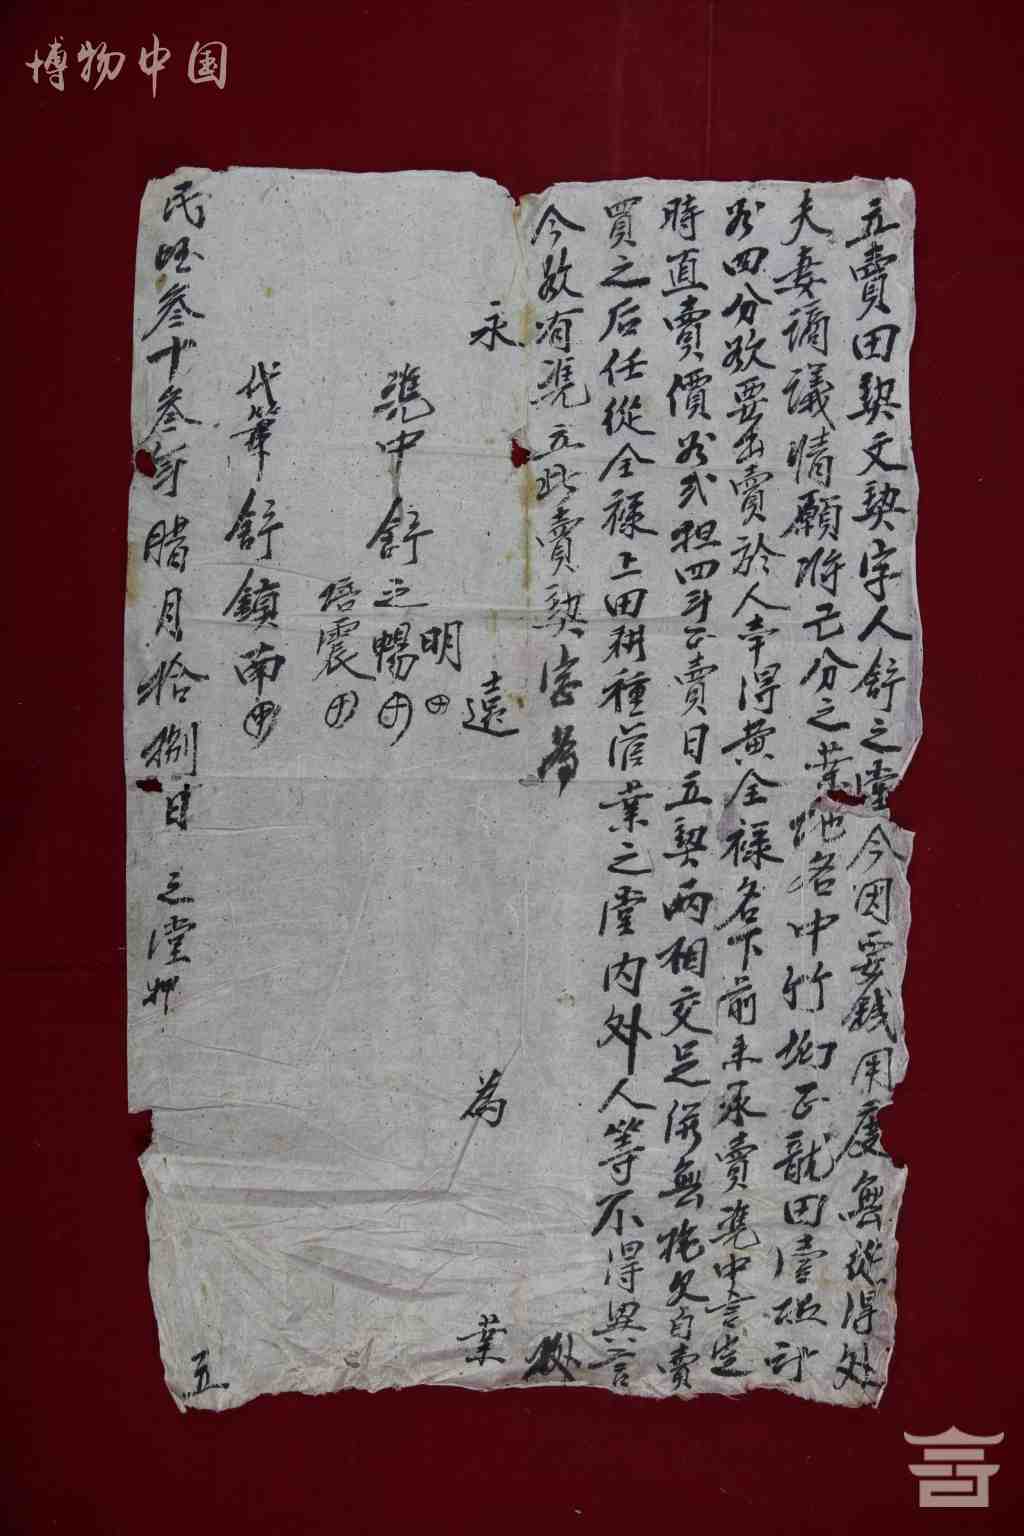 博物中国
立賣田契文契字人舒之堂今因要錢用度無從得处
夫妻謫議情願將己分之業地名中竹坳正龍田壹坵計
谷四分欲要出賣於人幸得黄全禄名下前来承賣憑中言定
時直賣價谷弍担四斗正賣日立契兩相交足俻無拖欠自賣
買之后任從全禄上田耕種管業之堂内外人等不得異言
今欲有憑立此賣契字為據
永遠為業
憑中舒之明
暢
培震
代筆舒鎮南
民國叁十叁年腊月拾捌日之堂押
立